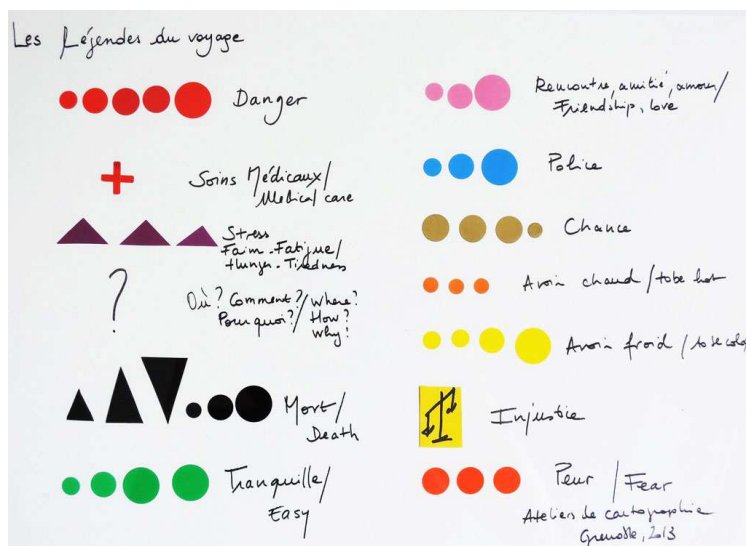 Les Légendes du voyage
Danger
Soins Médicaux/
Medical care
Stress
Faim - Fatigue/
Hunger - Tiredness
?
Où? Comment?/ Where?
Pourquoi?/ How?
Why?
Mort/
Death
Tranquille/
Easy
Rencontre, amitié, amour/
Friendship, love
Police
Chance
Avoir chaud/to be hot
Avoir froid/to be cold
Injustice
Peur / Fear
Ateliers de cartographie
Grenoble, 2013